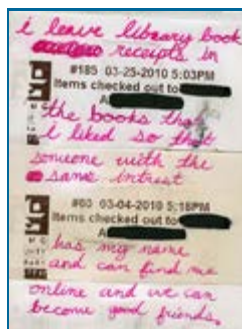 i leave library book
receipts in
#185 03-25-2010 5:03PM
Items checked out to
A
the books that
i liked so that
someone with the
same intrest
#60 03-04-2010 5:18PM
Items checked out to
A
has my name
and can find me
online and we can
become good friends.